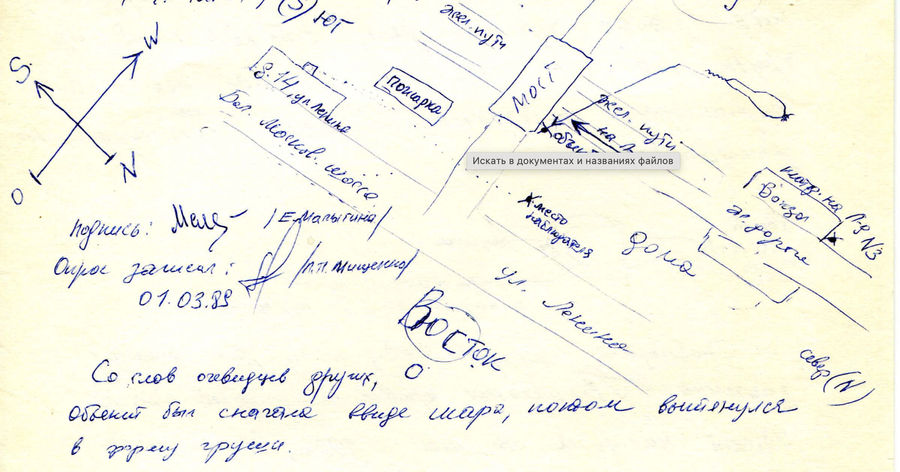 (S) ЮГ
жел. пути
W
S
N
O
д. 14 ул Ленина
пожарка
МОСТ
Бол. Москов. шоссе
жел. пути
на Л
объект
Искать в документах и названиях файлов
напр. на Л-д
N3
Вокзал
жел. дороги
место
наблюдателя
дома
ул. Ленина
Подпись: /Е.Малыгина/
Опрос записал: /П.П. Мищенко/
01.03.89
ВОСТОК
О
север (N)
Со слов очевидцев других,
объект был сначала ввиде шара, потом вытянулся
в форму груши.